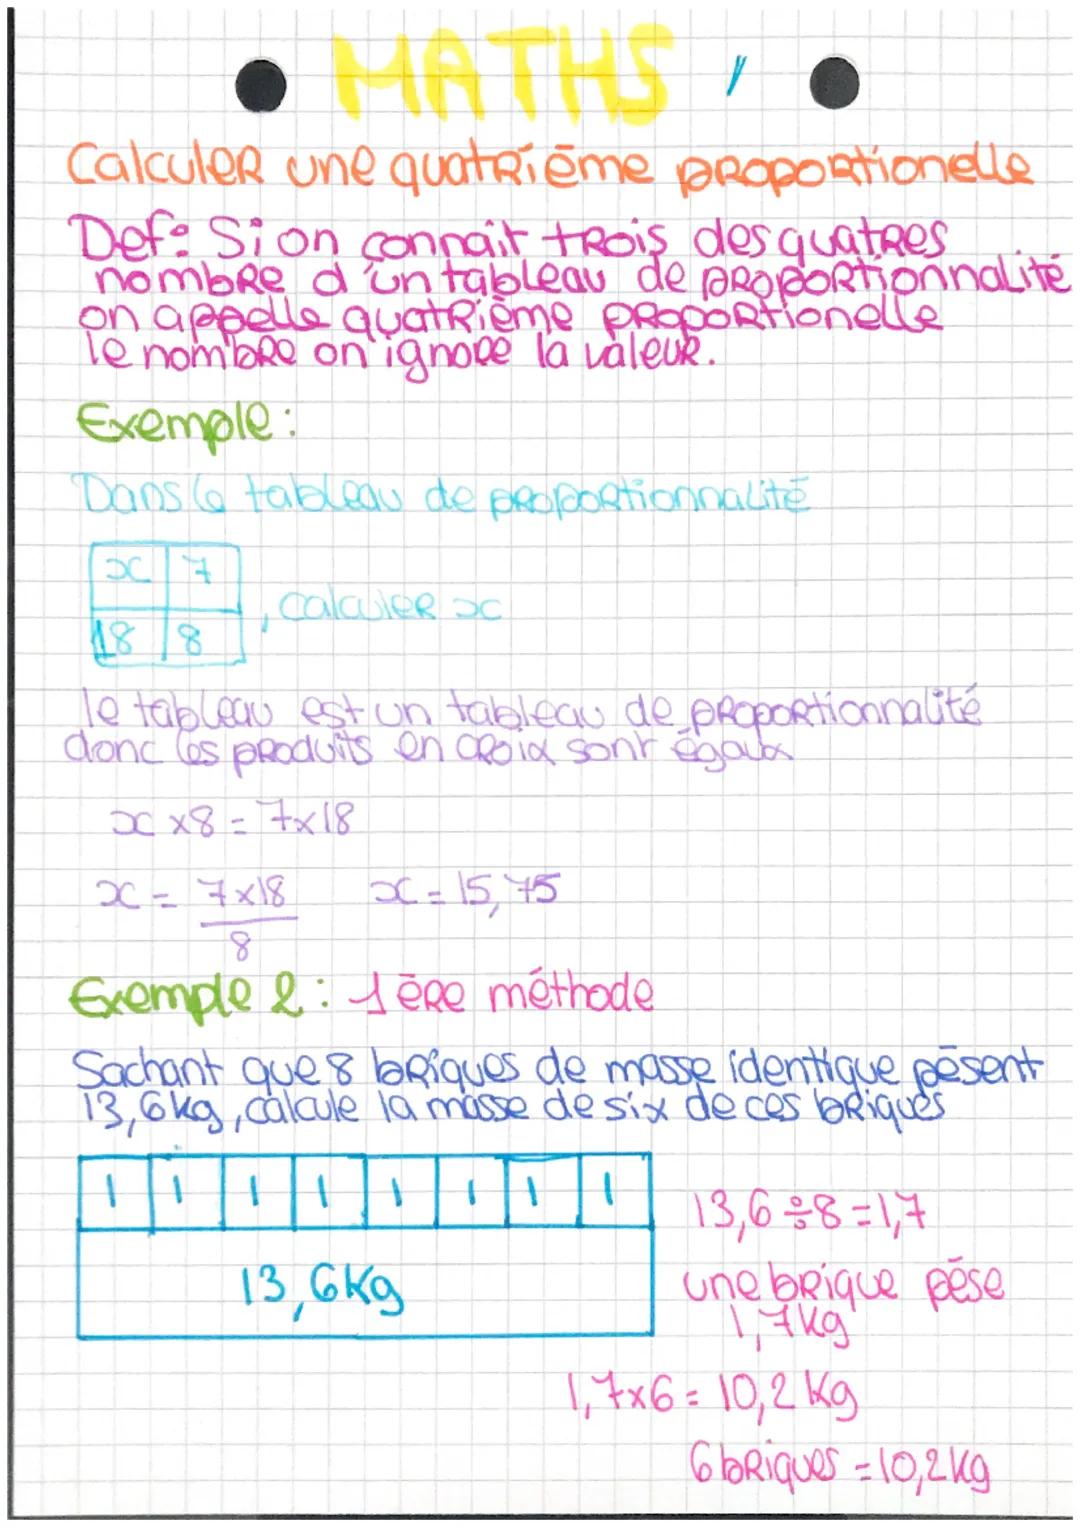 MATHS
Calculer une quatrième proportionelle
Def: Si on connaît trois des quatres
nombre d'un tableau de proportionnalité
on appelle quatrième proportionelle
le nombre on ignore la valeur.
Exemple:
Dans le tableau de proportionnalité
x 7
18 8 , calculer x
le tableau est un tableau de proportionnalité
donc les produits en croix sont égaux
x ×8 = 7×18
x = 7×18 x = 15,75
8
Exemple 2: 1ère méthode
Sachant que 8 briques de masse identique pèsent
13,6kg, calcule la masse de six de ces briques
1 1 1 1 1 1 1 1
13,6 ÷8 =1,7
13,6Kg
une brique pèse
1,7kg
1,7×6 = 10,2 Kg
6 briques = 10,2kg